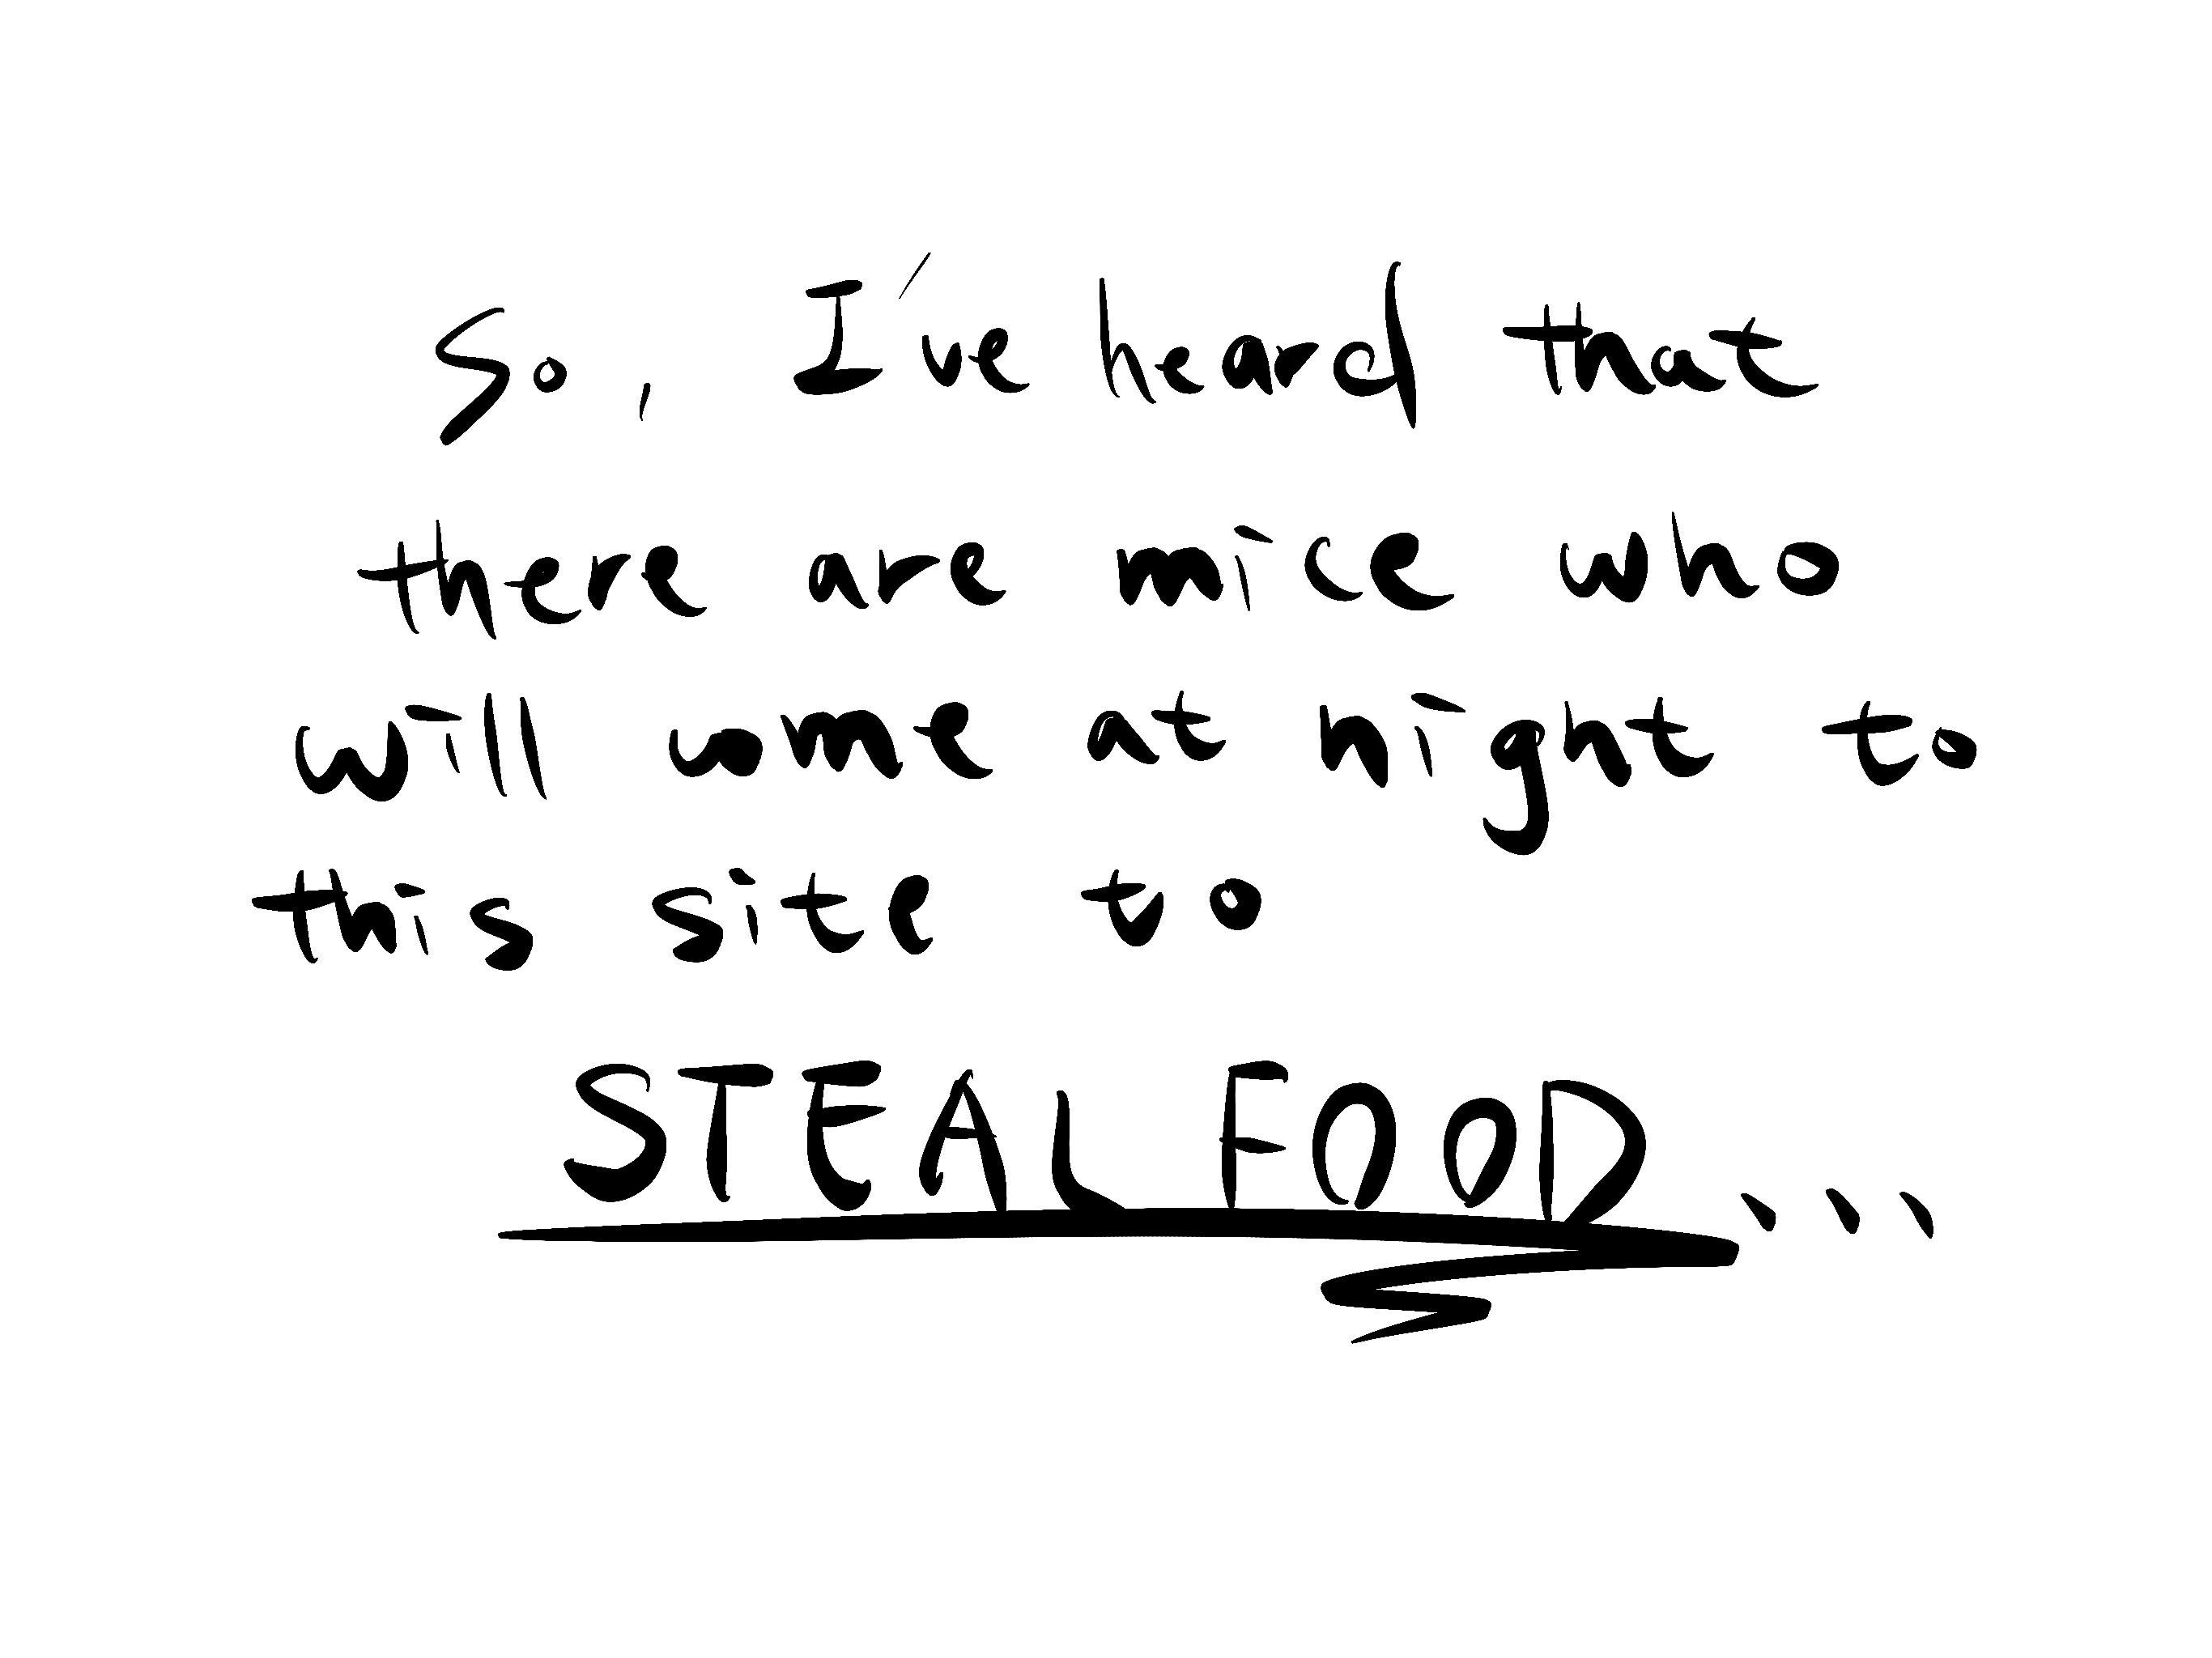 So, I've heard that
there are mice who
will come at night to
this site to
STEAL FOOD...